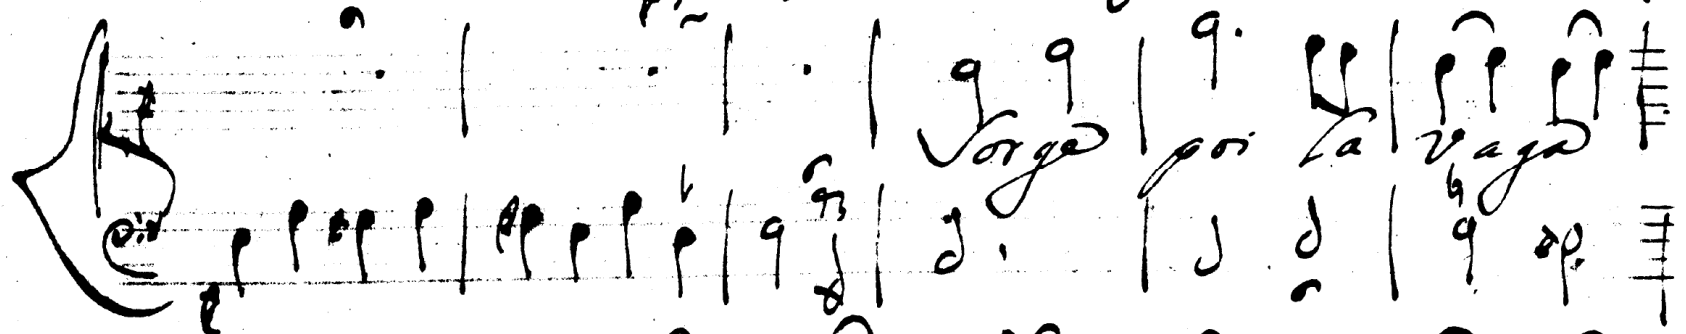 Sorge poi la vaga